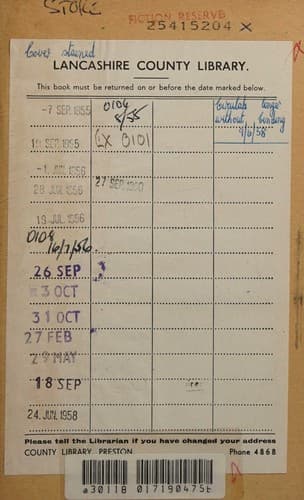 STORE
FICTION RESERVE
25415204 X
Cover stained
LANCASHIRE COUNTY LIBRARY.
This book must be returned on or before the date marked below.
-7 SEP. 1955
0104
8/55
Circulate longer
without binding
4/6/58
SEP. 1955
LX 3101
-1 JUN. 1956
28 JUN. 1956
27 SEP
19 JUL. 1956
0104
16/7/56
26 SEP
3 OCT
31 OCT
27 FEB
29 MAY
18 SEP
24. JUN. 1958
Please tell the Librarian if you have changed your address
COUNTY LIBRARY, PRESTON.
Phone 4868
a30118 017190475b